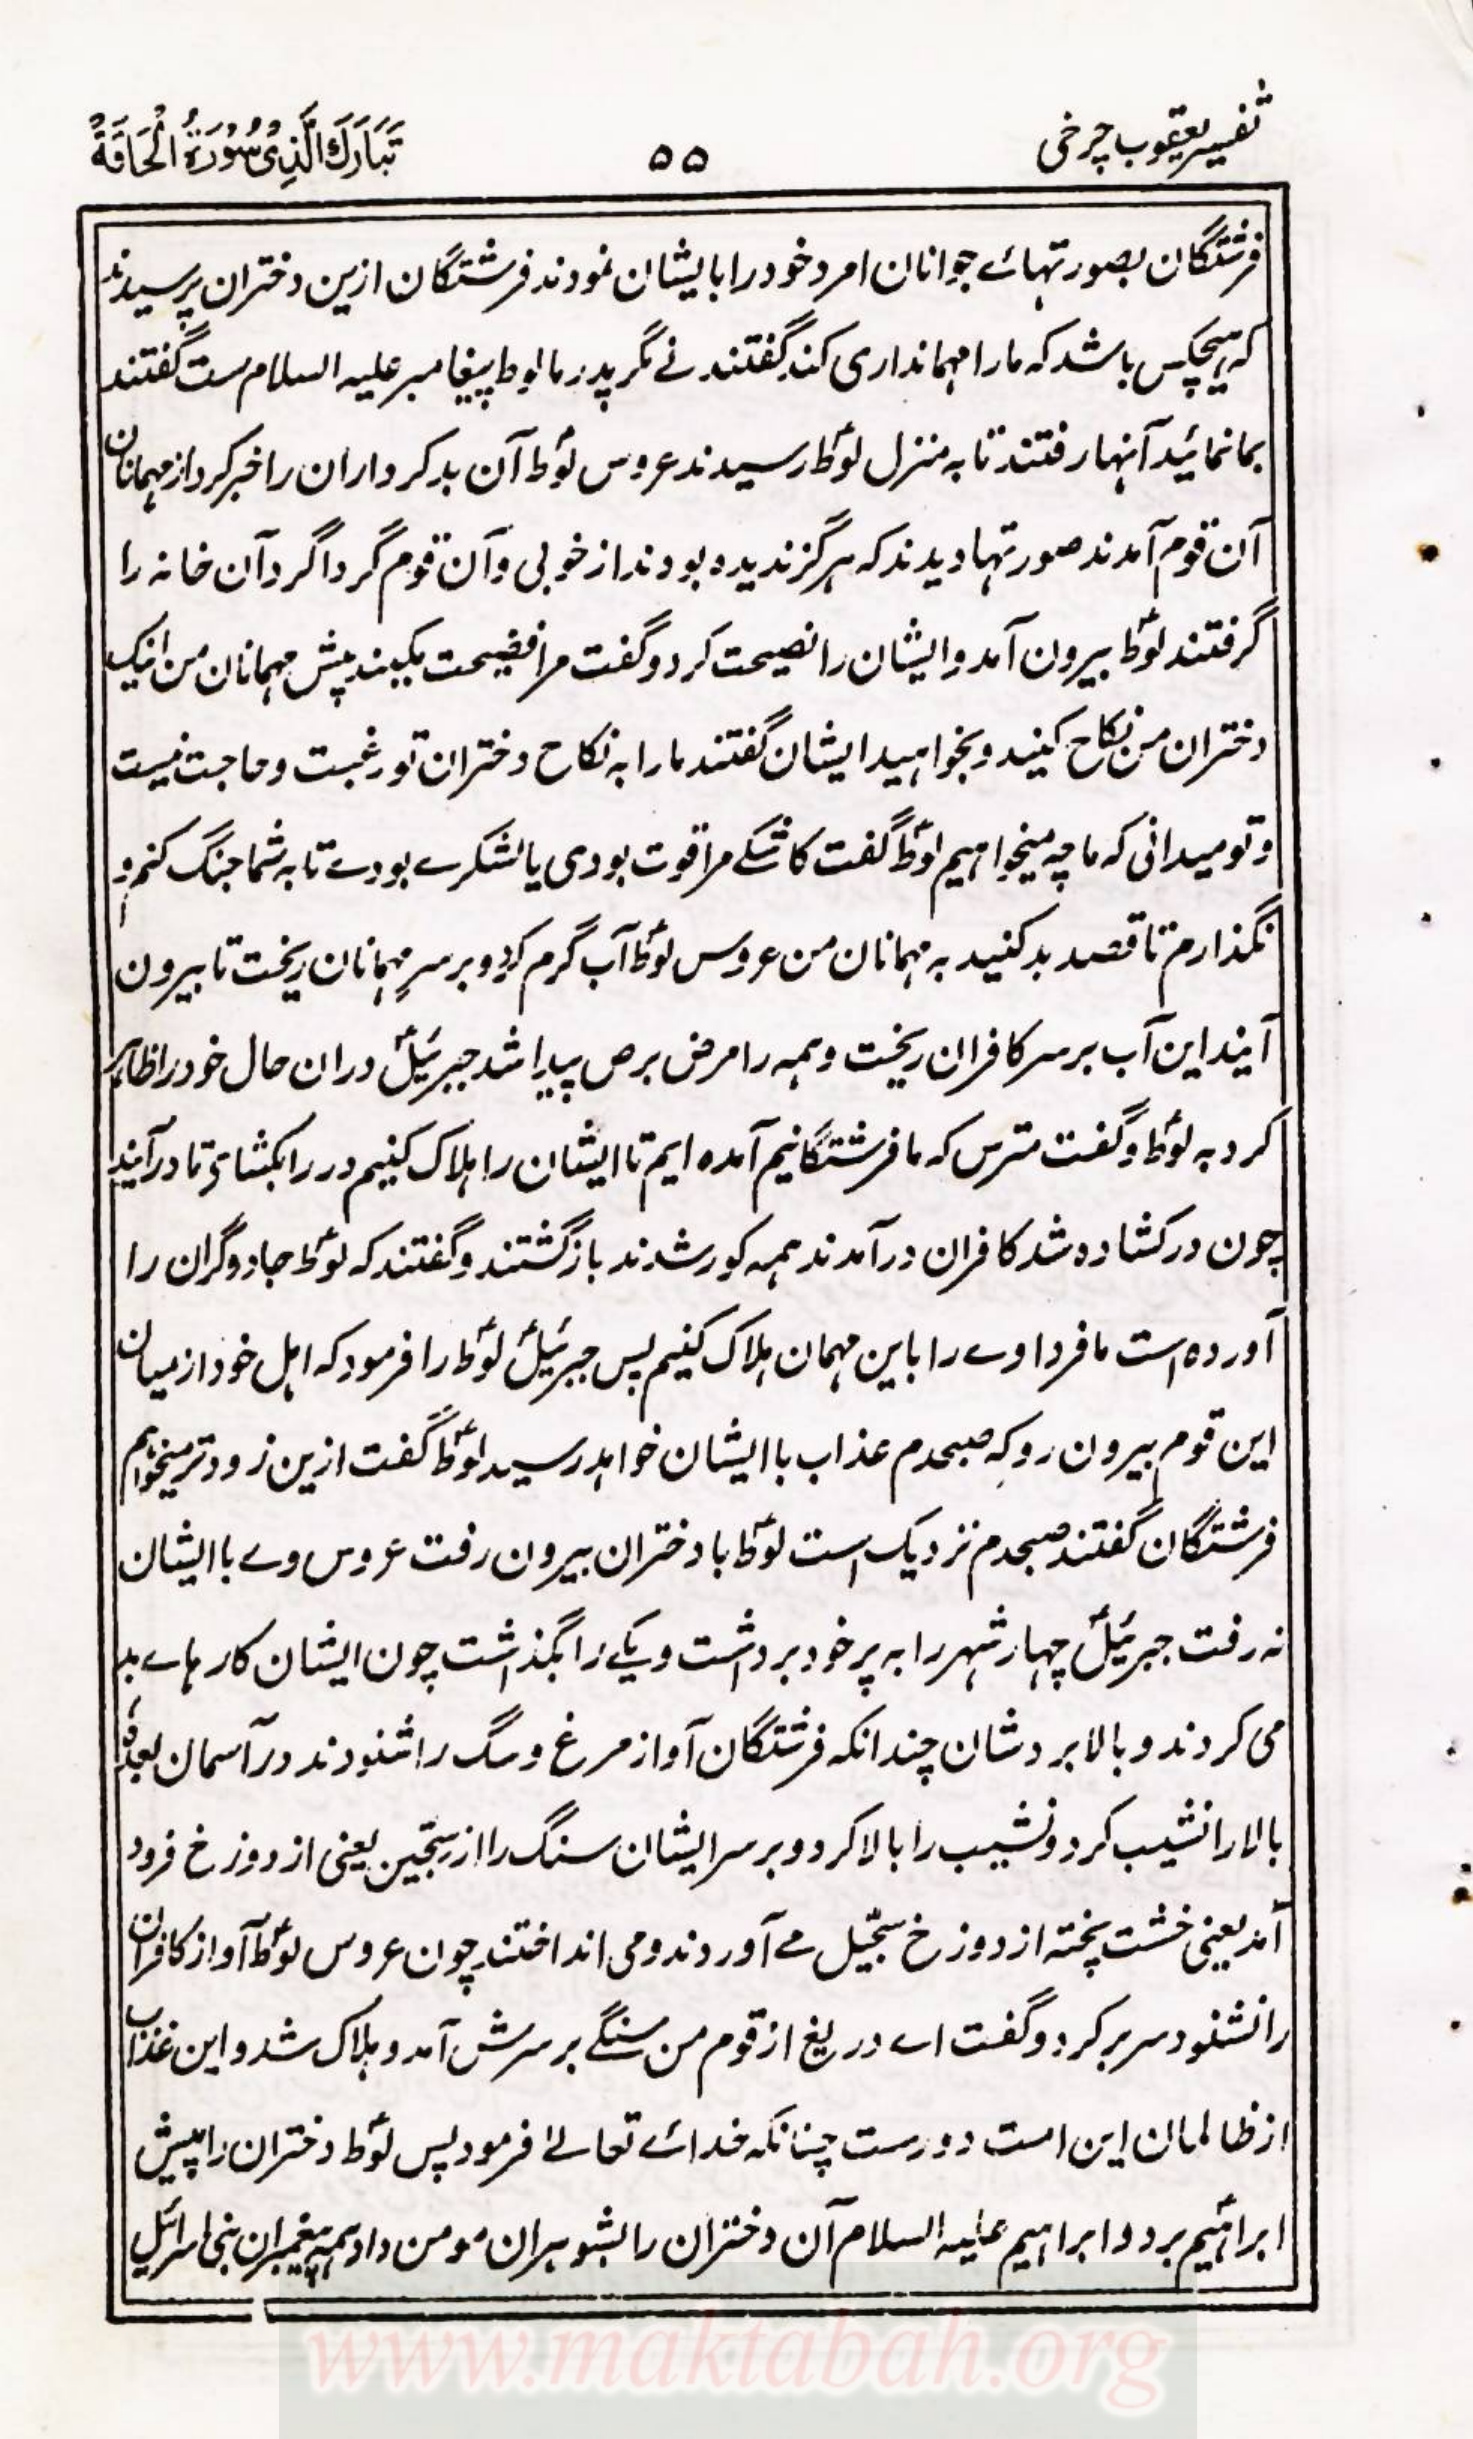 تفسیر یعقوب چرخی
۵۵
تَبَارَكَ الَّذِیْ سُوْرَةُ الْحَاقَةُ
فرشتگان بصورتہائے جوانان امرد خود را بایشان نمودند فرشتگان ازین دختران پرسیدند
کہ ہیچکس باشد کہ مارا مہمانداری کند گفتند نے مگر پدر ما لوط پیغامبر علیہ السلام ست گفتند
بما نمائید آنہا رفتند تا بہ منزل لوطؑ رسیدند عروس لوطؑ آن بدکرداران را خبر کرد از مہمانان
آن قوم آمدند صورتہا دیدند کہ ہرگز ندیدہ بودند از خوبی و آن قوم گرداگرد آن خانہ را
گرفتند لوطؑ بیرون آمد و ایشان را نصیحت کرد و گفت مرا فضیحت مکنید پیش مہمانان من اینک
دختران من نکاح کنید و بخواہید ایشان گفتند مارا بہ نکاح دختران تو رغبت و حاجت نیست
و تو میدانی کہ ما چہ میخواہیم لوطؑ گفت کاشکے مرا قوت بودی یا لشکرے بودے تا بہ شما جنگ کنم و
نگذارم تا قصد بد کنید بہ مہمانان من عروس لوطؑ آب گرم کرد و بر سرِ مہمانان ریخت تا بیرون
آیند این آب بر سر کافران ریخت و ہمہ را مرض برص پیدا شد جبرئیلؑ دران حال خود را ظاہر
کرد بہ لوطؑ و گفت مترس کہ ما فرشتگانیم آمدہ ایم تا ایشان را ہلاک کنیم در را بکشای تا درآیند
چون در کشادہ شد کافران درآمدند ہمہ کور شدند بازگشتند و گفتند کہ لوطؑ جادوگران را
آوردہ است ما فردا وے را باین مہمان ہلاک کنیم پس جبرئیلؑ لوطؑ را فرمود کہ اہل خود از میان
این قوم بیرون رو کہ صبحدم عذاب باایشان خواہد رسید لوطؑ گفت ازین زودتر میخواہم
فرشتگان گفتند صبحدم نزدیک است لوطؑ با دختران بیرون رفت عروس وے باایشان
نہ رفت جبرئیلؑ چہار شہر را بہ پر خود برداشت و یکے را بگذاشت چون ایشان کارہاے بد
می کردند و بالا بردشان چندانکہ فرشتگان آواز مرغ و سگ را شنودند در آسمان بعدہٗ
بالا را نشیب کرد و نشیب را بالا کرد و بر سر ایشان سنگ را از سجّین یعنی از دوزخ فرود
آمد یعنی خشت پختہ از دوزخ سجّیل مے آوردند و می انداختند چون عروس لوطؑ آواز کافران
را نشنود سر بر کرد و گفت اے دریغ از قوم من سنگے بر سرش آمد و ہلاک شد و این عذاب
از ظالمان این امت دورست چنانکہ خدائے تعالےٰ فرمود پس لوطؑ دختران را پیش
ابراہیمؑ برد و ابراہیم علیہ السلام آن دختران را بشوہران مومن داد ہمہ پیغمبران بنی اسرائیل
www.maktabah.org